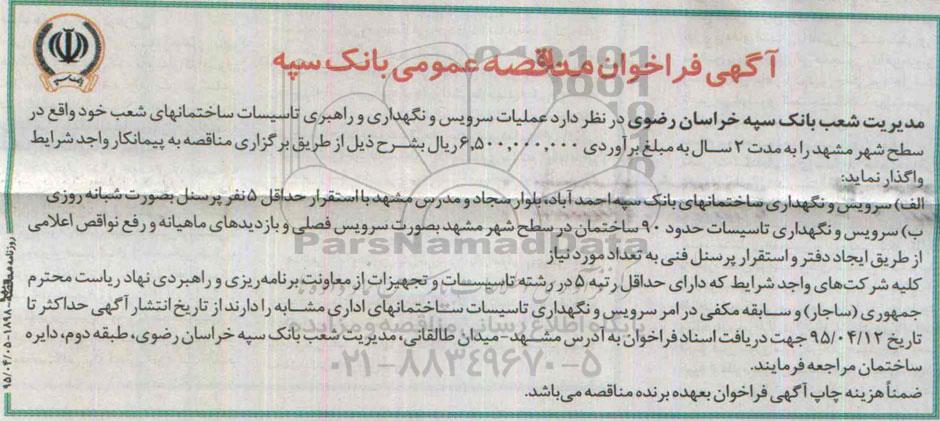 آگهی فراخوان مناقصه عمومی بانک سپه
مدیریت شعب بانک سپه خراسان رضوی در نظر دارد عملیات سرویس و نگهداری و راهبری تاسیسات ساختمانهای شعب خود واقع در
سطح شهر مشهد را به مدت ۲ سال به مبلغ برآوردی ۶,۵۰۰,۰۰۰,۰۰۰ ریال بشرح ذیل از طریق برگزاری مناقصه به پیمانکار واجد شرایط
واگذار نماید:
الف) سرویس و نگهداری ساختمانهای بانک سپه احمد آباد، بلوار سجاد و مدرس مشهد با استقرار حداقل ۵ نفر پرسنل بصورت شبانه روزی
ب) سرویس و نگهداری تاسیسات حدود ۹۰ ساختمان در سطح شهر مشهد بصورت سرویس فصلی و بازدیدهای ماهیانه و رفع نواقص اعلامی
از طریق ایجاد دفتر و استقرار پرسنل فنی به تعداد مورد نیاز
کلیه شرکت‌های واجد شرایط که دارای حداقل رتبه ۵ در رشته تاسیسات و تجهیزات از معاونت برنامه‌ریزی و راهبردی نهاد ریاست محترم
جمهوری (ساجار) و سابقه مکفی در امر سرویس و نگهداری تاسیسات ساختمانهای اداری مشابه را دارند از تاریخ انتشار آگهی حداکثر تا
تاریخ ۹۵/۰۴/۱۲ جهت دریافت اسناد فراخوان به آدرس مشهد - میدان طالقانی، مدیریت شعب بانک سپه خراسان رضوی، طبقه دوم، دایره
ساختمان مراجعه فرمایند.
ضمناً هزینه چاپ آگهی فراخوان بعهده برنده مناقصه می‌باشد.
ParsNamadData
پایگاه اطلاع رسانی مناقصه و مزایده
۰۲۱-۸۸۳۴۹۶۷۰-۵